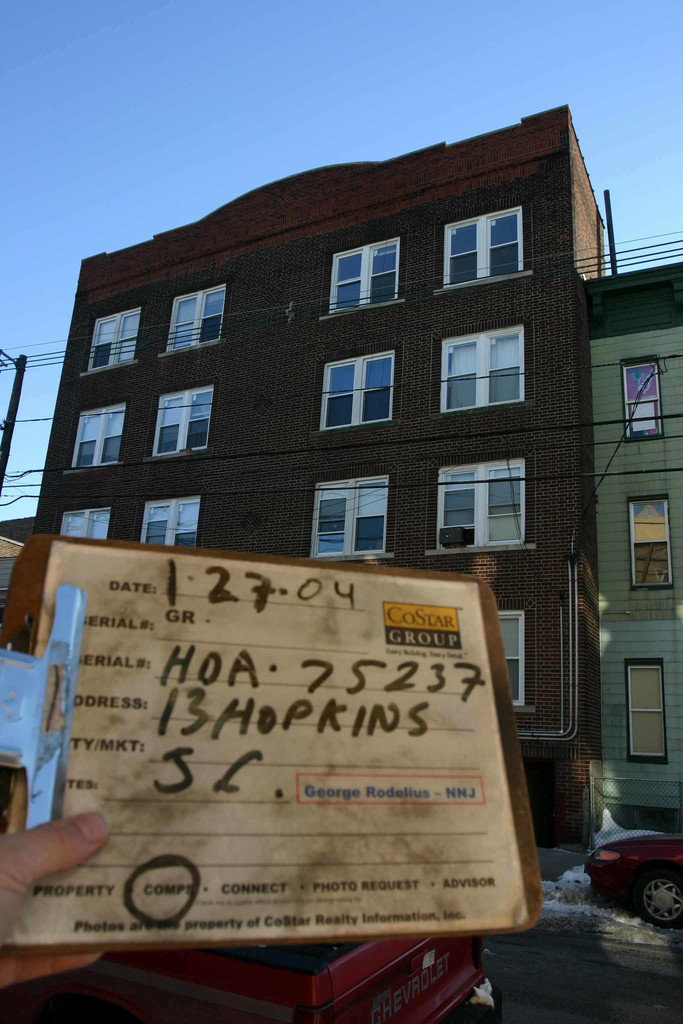 DATE: 1-27-04
SERIAL#: GR
COSTAR
GROUP
Every Building. Every Detail.
SERIAL#: HOA-75237
DDRESS: 13 HOPKINS
TY/MKT: J C.
TES:
George Rodelius - NNJ
PROPERTY • COMPS • CONNECT • PHOTO REQUEST • ADVISOR
Photos are the property of CoStar Realty Information, Inc.
CHEVROLET